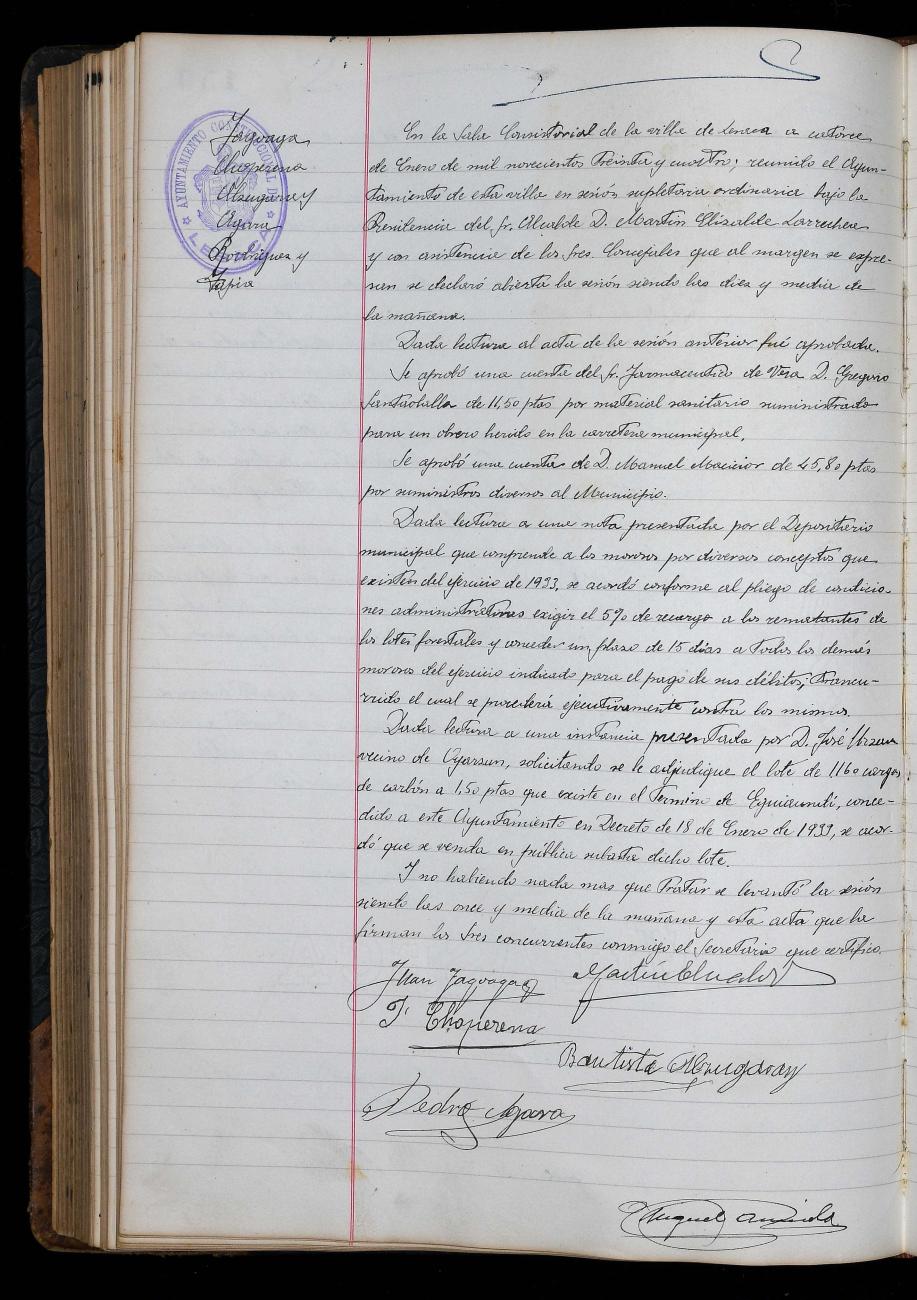 AYUNTAMIENTO CONSTITUCIONAL DE
Jaguaga
Choperena
Alzugaray
Agara
Rodriguez y
Tapia
En la Sala Consistorial de la villa de Lesaca a catorce
de Enero de mil novecientos treinta y cuatro; reunido el Ayun-
tamiento de esta villa en sesión supletoria ordinaria bajo la
Presidencia del Sr. Alcalde D. Martin Elizalde Larrechea
y con asistencia de los Sres. Concejales que al margen se expre-
san se declaró abierta la sesión siendo las diez y media de
la mañana.
Dada lectura al acta de la sesión anterior fué aprobada.
Se aprobó una cuenta del Sr. Farmaceutico de Vera D. Gregorio
Santaolalla de 11,50 ptas por material sanitario suministrado
para un obrero herido en la carretera municipal.
Se aprobó una cuenta de D. Manuel Macicior de 45,80 ptas
por suministros diversos al Municipio.
Dada lectura a una nota presentada por el Depositario
municipal que comprende a los morosos por diversos conceptos que
existen del ejercicio de 1933, se acordó conforme al pliego de condicio-
nes administrativas exigir el 5% de recargo a los rematantes de
los lotes forestales y conceder un plazo de 15 dias a todos los demás
morosos del ejercicio indicado para el pago de sus débitos, trancu-
rrido el cual se procederá ejecutivamente contra los mismos.
Dada lectura a una instancia presentada por D. José
vecino de Oyarzun, solicitando se le adjudique el lote de 1160 cargas
de carbón a 1,50 ptas que existe en el termino de, conce-
dido a este Ayuntamiento en Decreto de 18 de Enero de 1933, se acor-
dó que se venda en pública subasta dicho lote.
Y no habiendo nada mas que tratar se levantó la sesión
siendo las once y media de la mañana y esta acta que la
firman los Sres concurrentes conmigo el Secretario que certifico.
Juan Jaguaga Martin Elizalde
P. Choperena
Bautista Alzugaray
Pedro Agara
Miguel